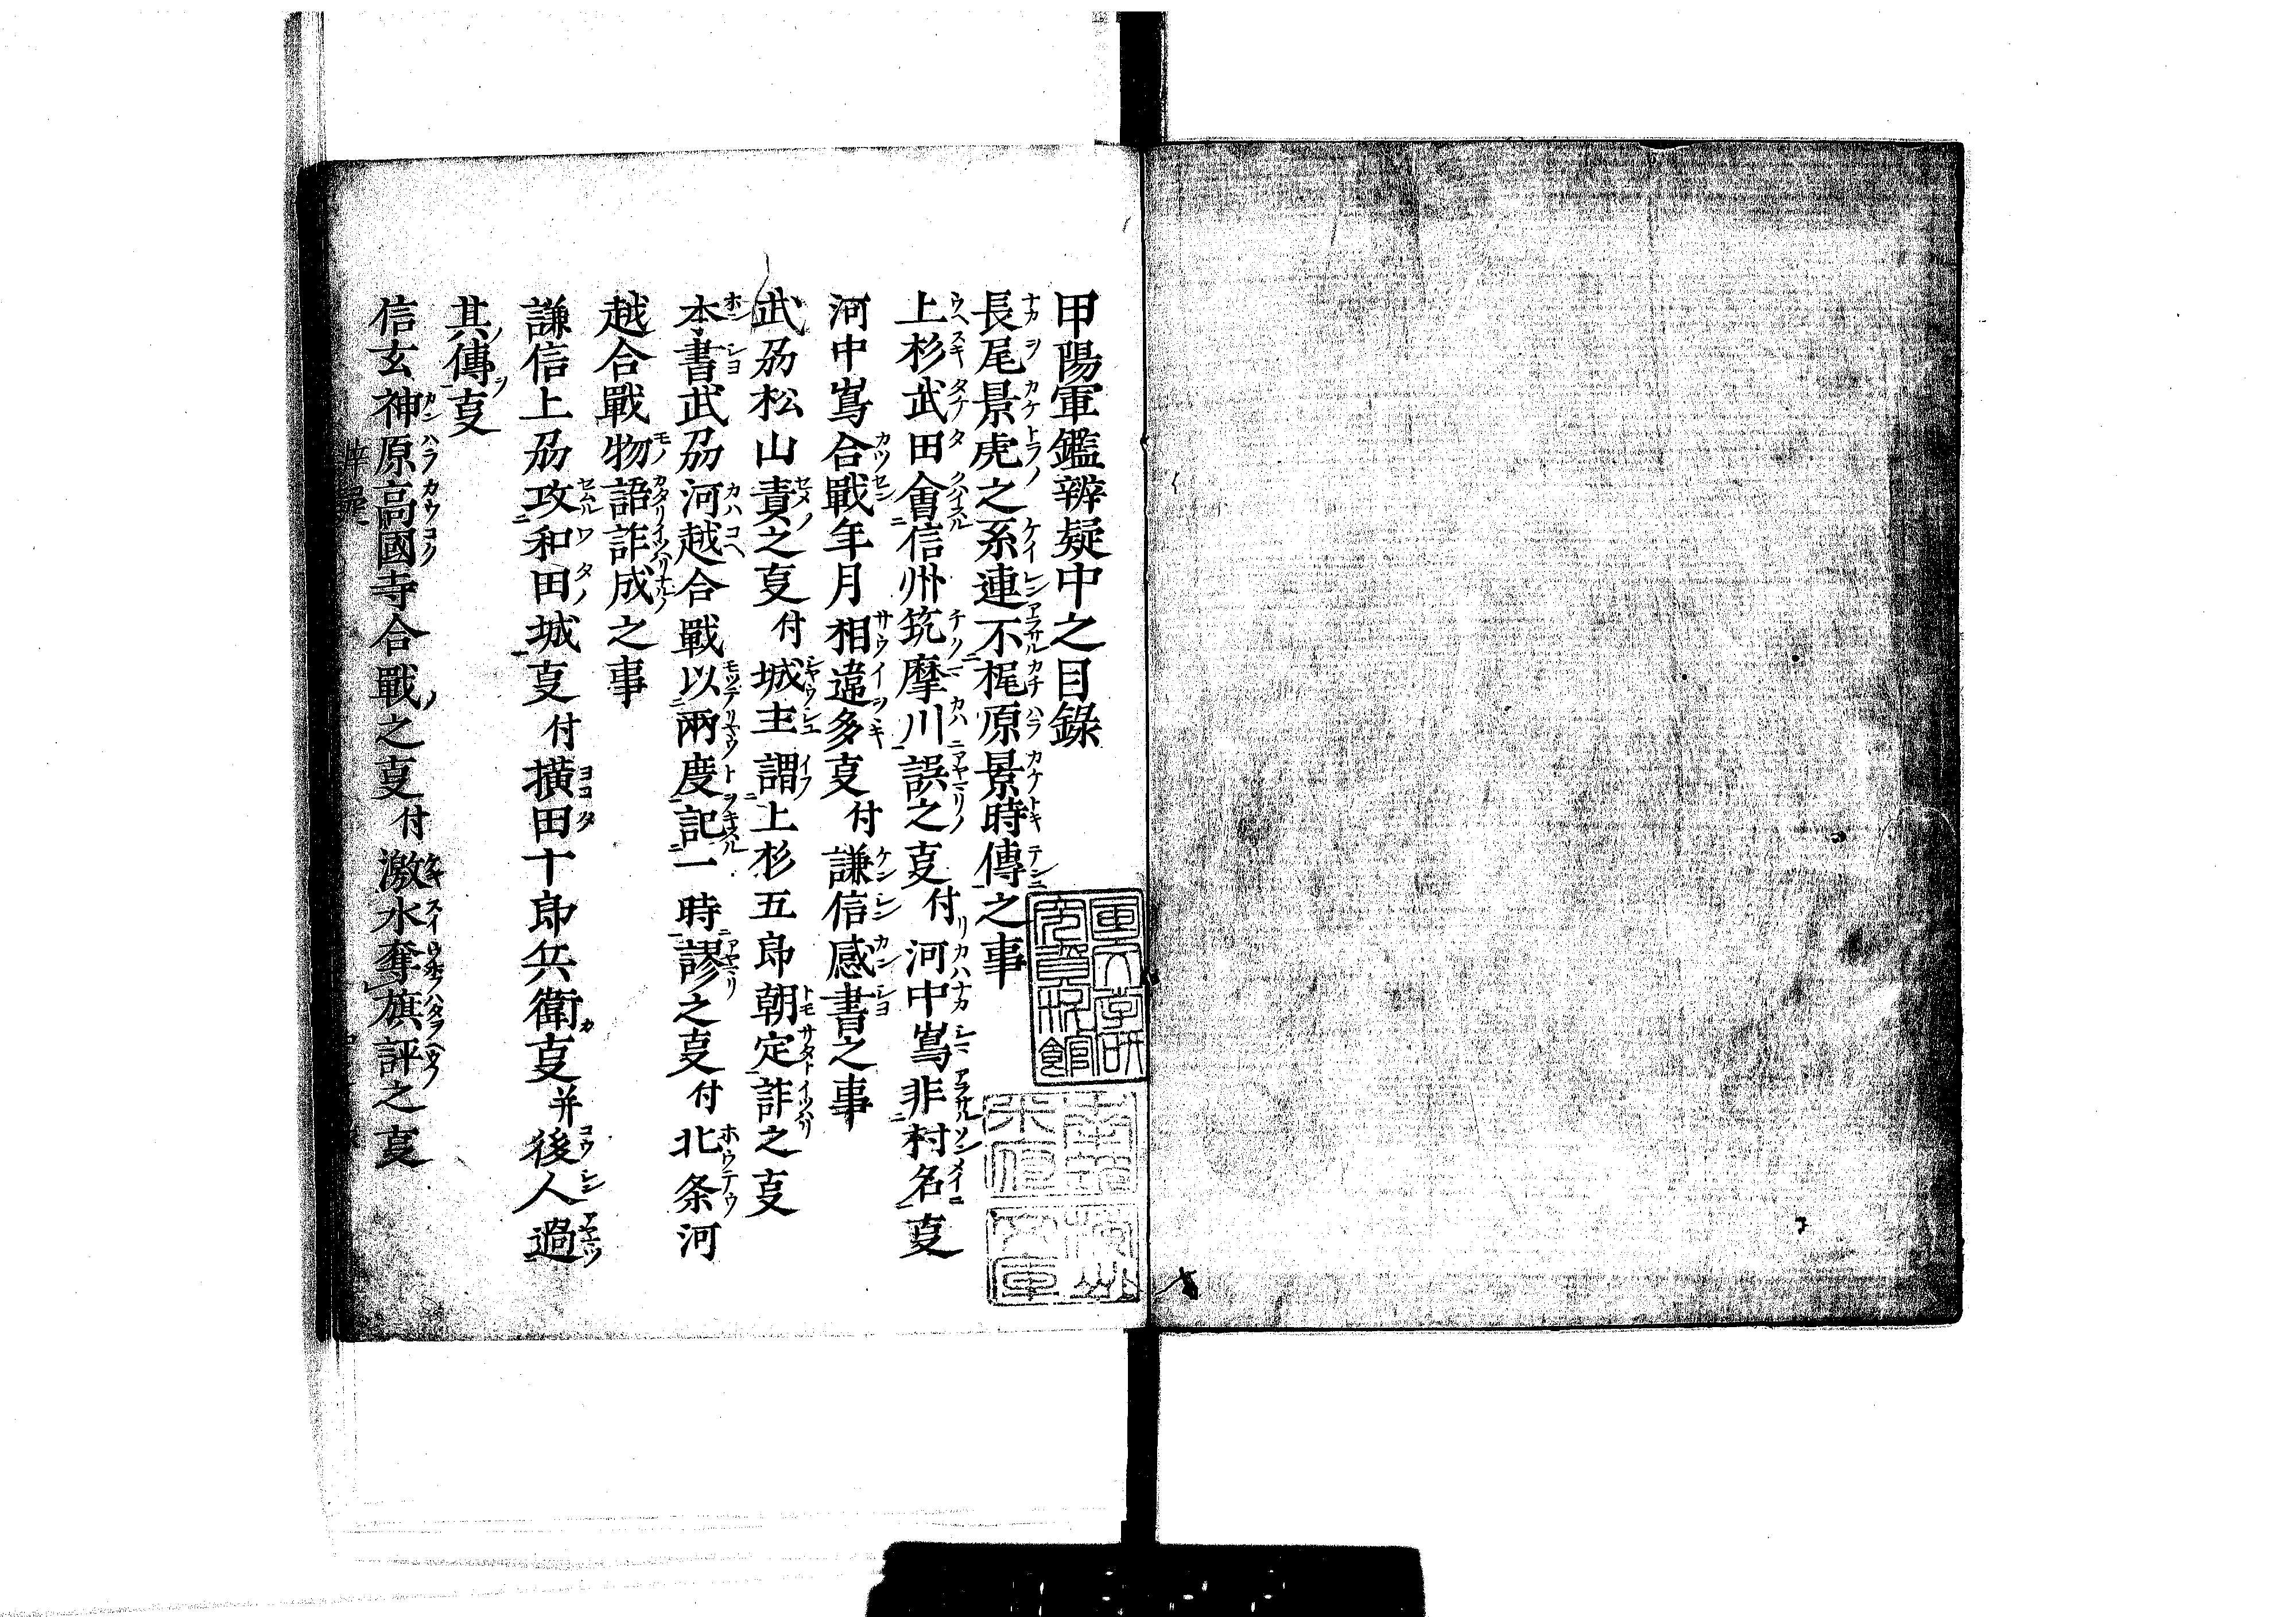 甲陽軍鑑辨疑中之目録
長尾景虎之系連不梶原景時傳之事
上杉武田會信州筑摩川誤之㕝付河中嶌非村名㕝
河中嶌合戰年月相違多㕝付謙信感書之事
武刕松山責之㕝付城主謂上杉五郎朝定詐之㕝
本書武刕河越合戰以兩度記一時謬之㕝付北条河
越合戰物語詐成之事
謙信上刕攻和田城㕝付横田十郎兵衛㕝并後人過
其傳㕝
信玄神原高國寺合戰之㕝付激水奪旗評之㕝